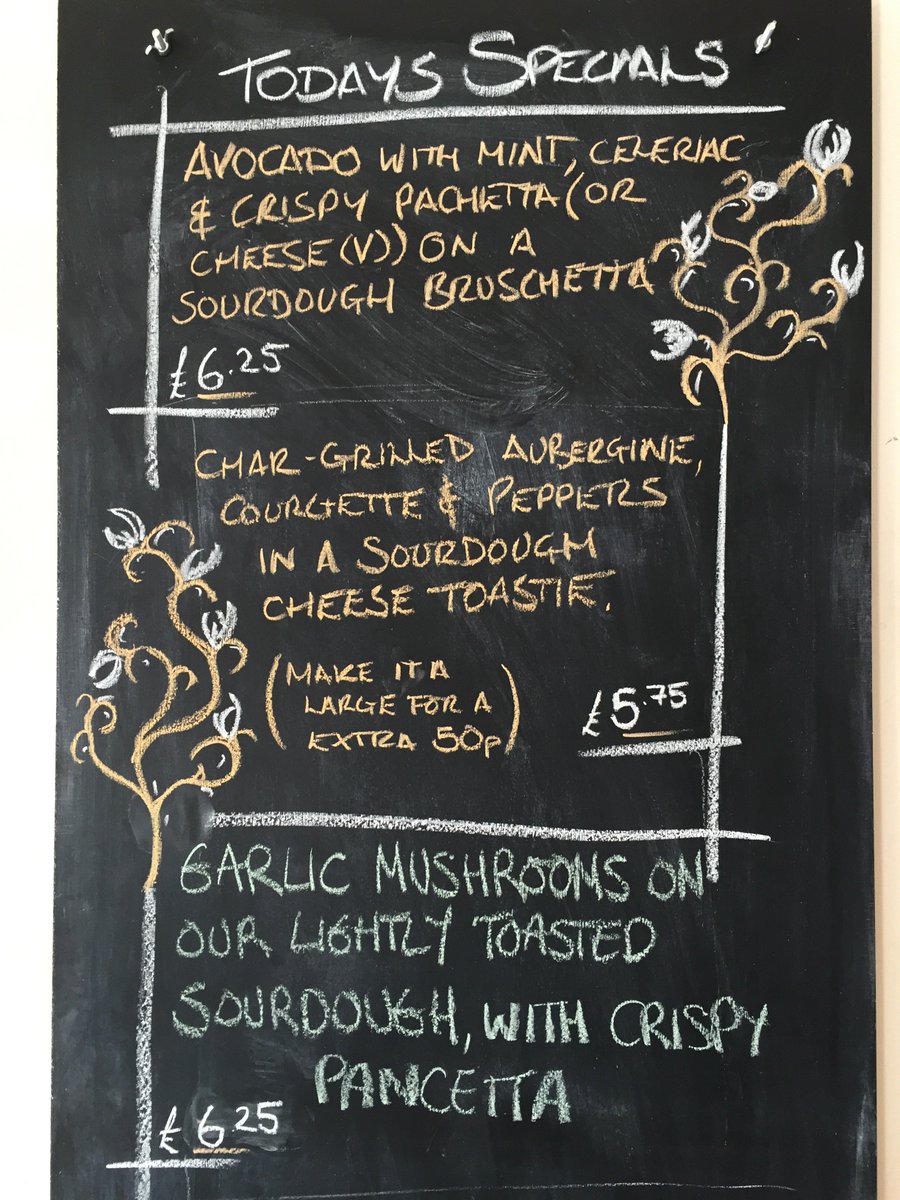 TODAYS SPECIALS
AVOCADO WITH MINT, CELERIAC
& CRISPY PACHETTA (OR
CHEESE (V)) ON A
SOURDOUGH BRUSCHETTA
£6.25
CHAR-GRILLED AUBERGINE,
COURGETTE & PEPPERS
IN A SOURDOUGH
CHEESE TOASTIE.
(MAKE IT A
LARGE FOR A
EXTRA 50p)
£5.75
GARLIC MUSHROOMS ON
OUR LIGHTLY TOASTED
SOURDOUGH, WITH CRISPY
PANCETTA
£6.25